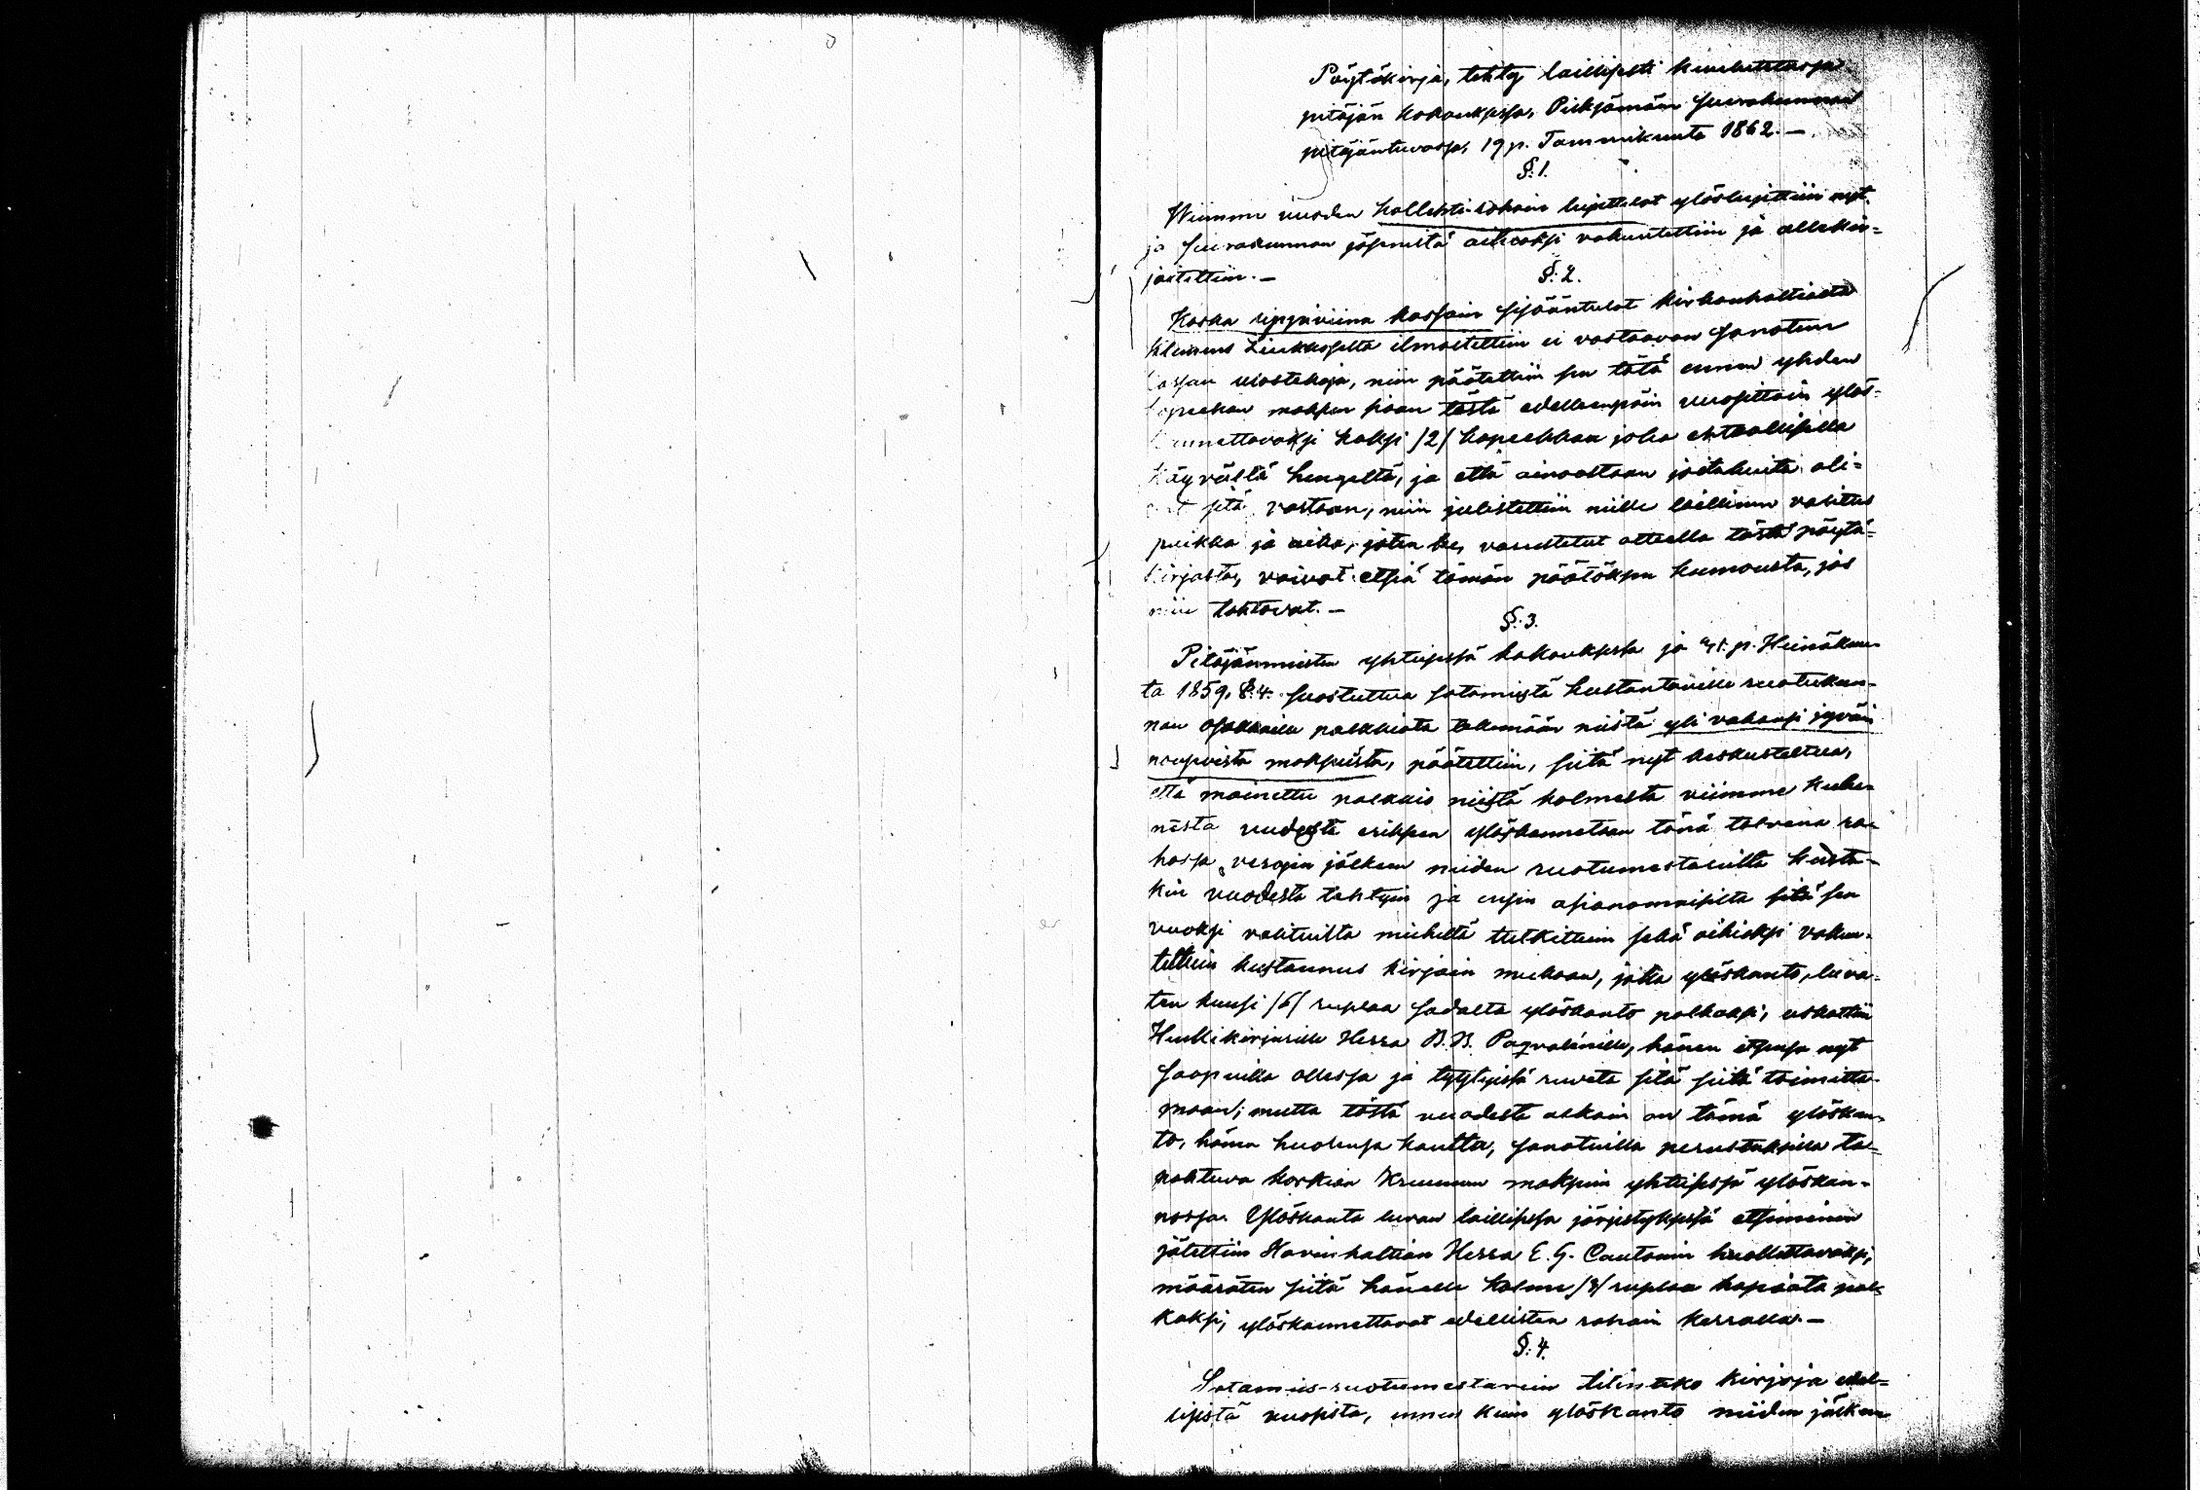 Pöytäkirja, tehty laillisesti kuulutetussa
pitäjän kokouksessa, Pieksämäen seurakunnan
pitäjäntuvassa, 19 p. Tammikuuta 1862.—
§. 1.
Wiimme vuoden kollehti-rahain luettelot ylösluettiin nyt
ja seurakunnan jäseniltä oikeaksi vakuutettiin ja allekir-
joitettiin.—
§. 2.
Koska rippiviina kassain sisääntulot kirkonhaltialta
Klemens Liukkoselta ilmoitettiin ei vastaavan sanotun
kassan ulostekoja, niin päätettiin sen tätä ennen yhden
kopeekan maksun siaan tästä edelleenpäin vuosittain ylös-
kannettavaksi kaksi /2/ kopeekkaa joka ehtoollisella
käyvältä hengeltä, ja että ainoastaan joitakuita oli-
vat sitä vastaan, niin julistettiin niille laillinen valitus
paikka ja aika, joten he, varustetut otteella tästä pöytä-
kirjasta, voivat etsiä tämän päätöksen kumousta, jos
niin tahtovat.—
§. 3.
Pitäjänmiesten yhteisessä kokouksessa ja p. Heinäkuu-
ta 1859, §. 4. suostuttua sotamiestä kustantaville ruotukun-
nan osakkaille palkkiota tekemään niistä yli vakansi jyväin
nousevista maksuista, päätettiin, siitä nyt keskusteltua,
että mainittu palkkio niistä kolmesta viimme kulu-
nesta vuodesta erikseen ylöskannetaan tänä talvena ra-
hassa, verojen jälkeen niiden ruotumestareilta kusta-
kin vuodesta tehtyin ja asianomaisilta sitä sen
vuoksi valituilta miehiltä tutkittuin sekä oikiaksi vakuu-
tettuin kustannus kirjain mukaan, jotka ylöskanto, luva-
ten kuusi /6/ ruplaa sadalta ylöskanto palkaksi, uskottiin
Henkikirjurille Herra B. B. Pagvalénille, hänen itsensä nyt
saapuvilla ollessa ja tyytyissä ruveta sitä siitä toimitta-
maan; mutta tästä vuodesta alkain on tämä ylöskan-
to, hänen huolensa kautta, sanotuilla perustuksilla ta-
pahtuva korkian Kruunun maksuin yhteisessä ylöskan-
nossa. Ylöskanto luvan laillisessa järjestyksessä etsiminen
jätettiin Kovinhaltian Herra E. G. Cautonin huollettavaksi,
määräten siitä hänelle kolme /3/ ruplaa hopiaata pal-
kaksi, ylöskannettavat edellisten rahain kerralla.—
§. 4.
Sotamies-ruotumestarein tilinteko kirjoja edel-
lisistä vuosista, ennen kuin ylöskanto niiden jälkeen